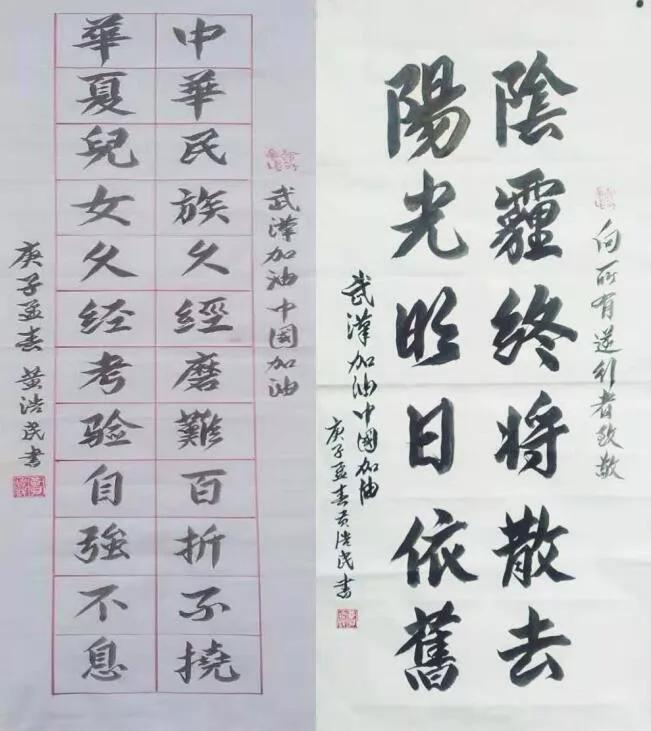 武漢加油中国加油
中華民族久經磨難百折不撓
華夏兒女久经考验自強不息
庚子孟春 黄浩民書
向所有逆行者致敬
陰霾终将散去
陽光明日依舊
武漢加油中國加油
庚子孟春黄浩民書